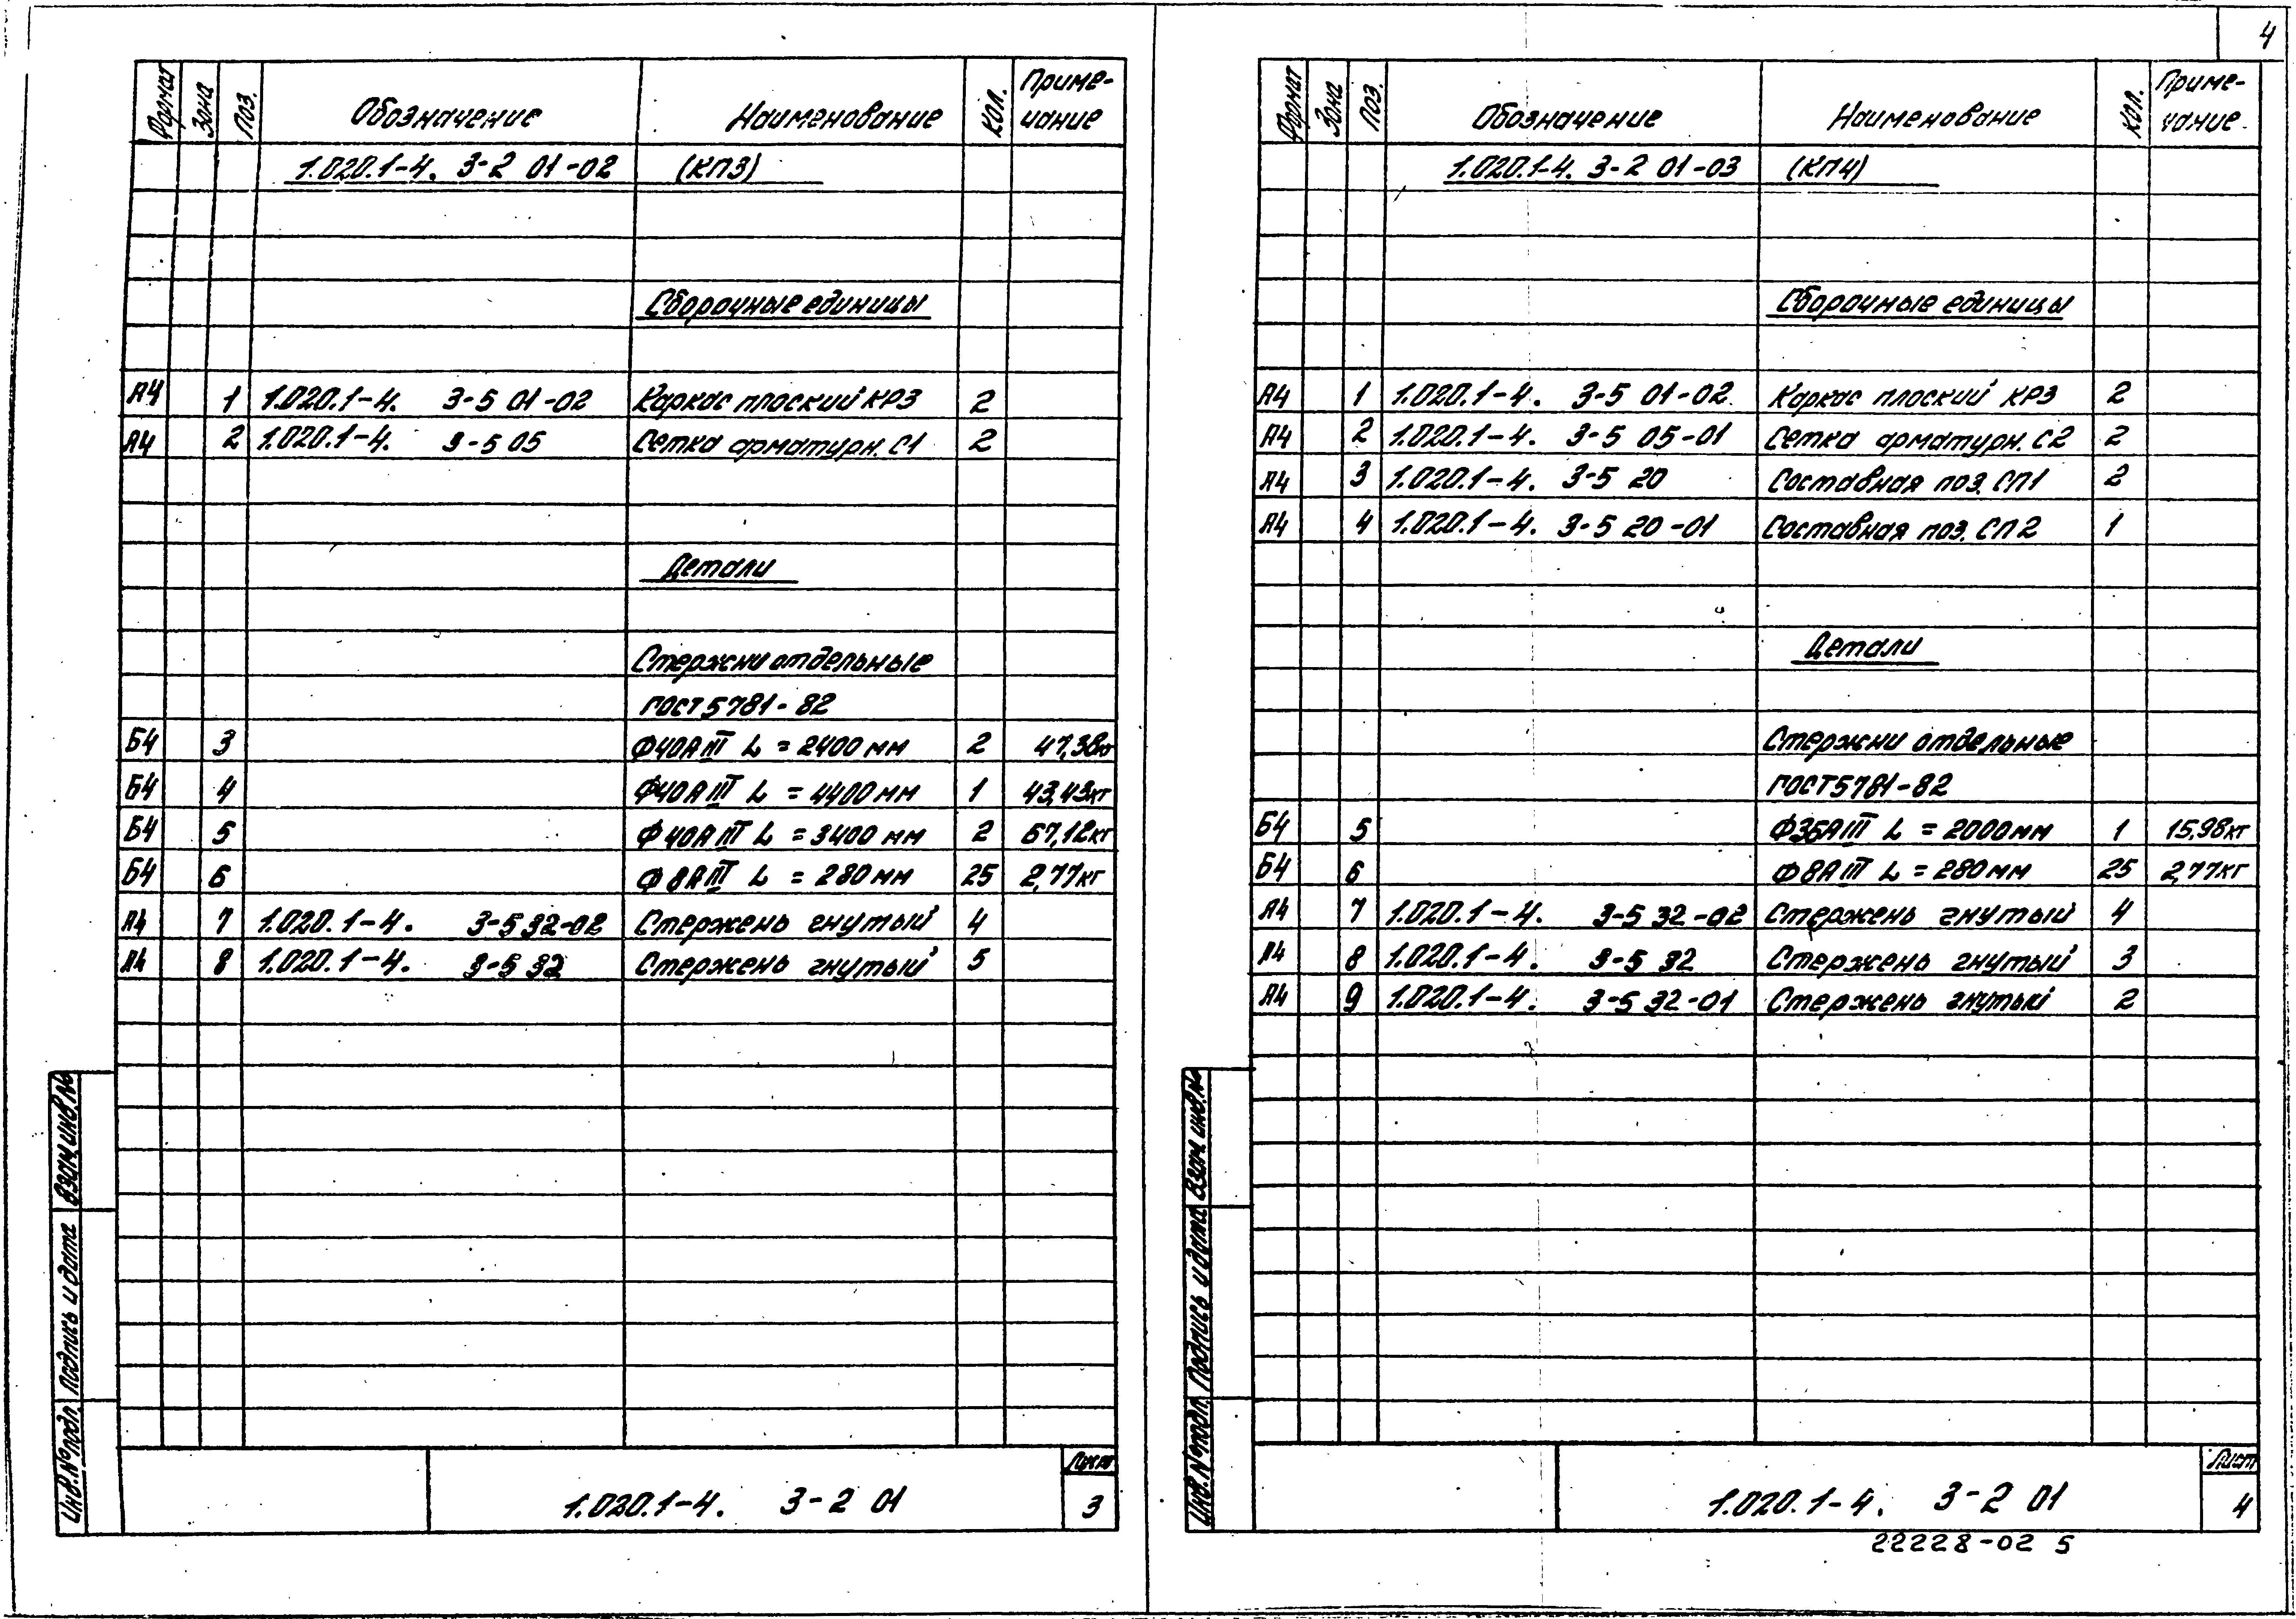 4
Формат Зона Поз. Обозначение Наименование Кол. Приме-чание
1.020.1-4. 3-2 01-02 (КП3)
Сборочные единицы
А4 1 1.020.1-4. 3-5 01-02 Каркас плоский КР3 2
А4 2 1.020.1-4. 3-5 05 Сетка арматурн. С1 2
Детали
Стержни отдельные
ГОСТ 5781-82
Б4 3 Ф40АIII L = 2400 мм 2 47,38кг
Б4 4 Ф40АIII L = 4400 мм 1 43,43кг
Б4 5 Ф40АIII L = 3400 мм 2 67,12кг
Б4 6 Ф8АIII L = 280 мм 25 2,77кг
А4 7 1.020.1-4. 3-5 32-02 Стержень гнутый 4
А4 8 1.020.1-4. 3-5 32 Стержень гнутый 5
Инв.№подл. Подпись и дата Взам.инв.№
1.020.1-4. 3-2 01
Лист
3
Формат Зона Поз. Обозначение Наименование Кол. Приме-чание
1.020.1-4. 3-2 01-03 (КП4)
Сборочные единицы
А4 1 1.020.1-4. 3-5 01-02 Каркас плоский КР3 2
А4 2 1.020.1-4. 3-5 05-01 Сетка арматурн. С2 2
А4 3 1.020.1-4. 3-5 20 Составная поз. СП1 2
А4 4 1.020.1-4. 3-5 20-01 Составная поз. СП2 1
Детали
Стержни отдельные
ГОСТ 5781-82
Б4 5 Ф36АIII L = 2000мм 1 15,98кг
Б4 6 Ф8АIII L = 280мм 25 2,77кг
А4 7 1.020.1-4. 3-5 32-02 Стержень гнутый 4
А4 8 1.020.1-4. 3-5 32 Стержень гнутый 3
А4 9 1.020.1-4. 3-5 32-01 Стержень гнутый 2
Инв.№подл. Подпись и дата Взам.инв.№
1.020.1-4. 3-2 01
Лист
4
22228-02 5